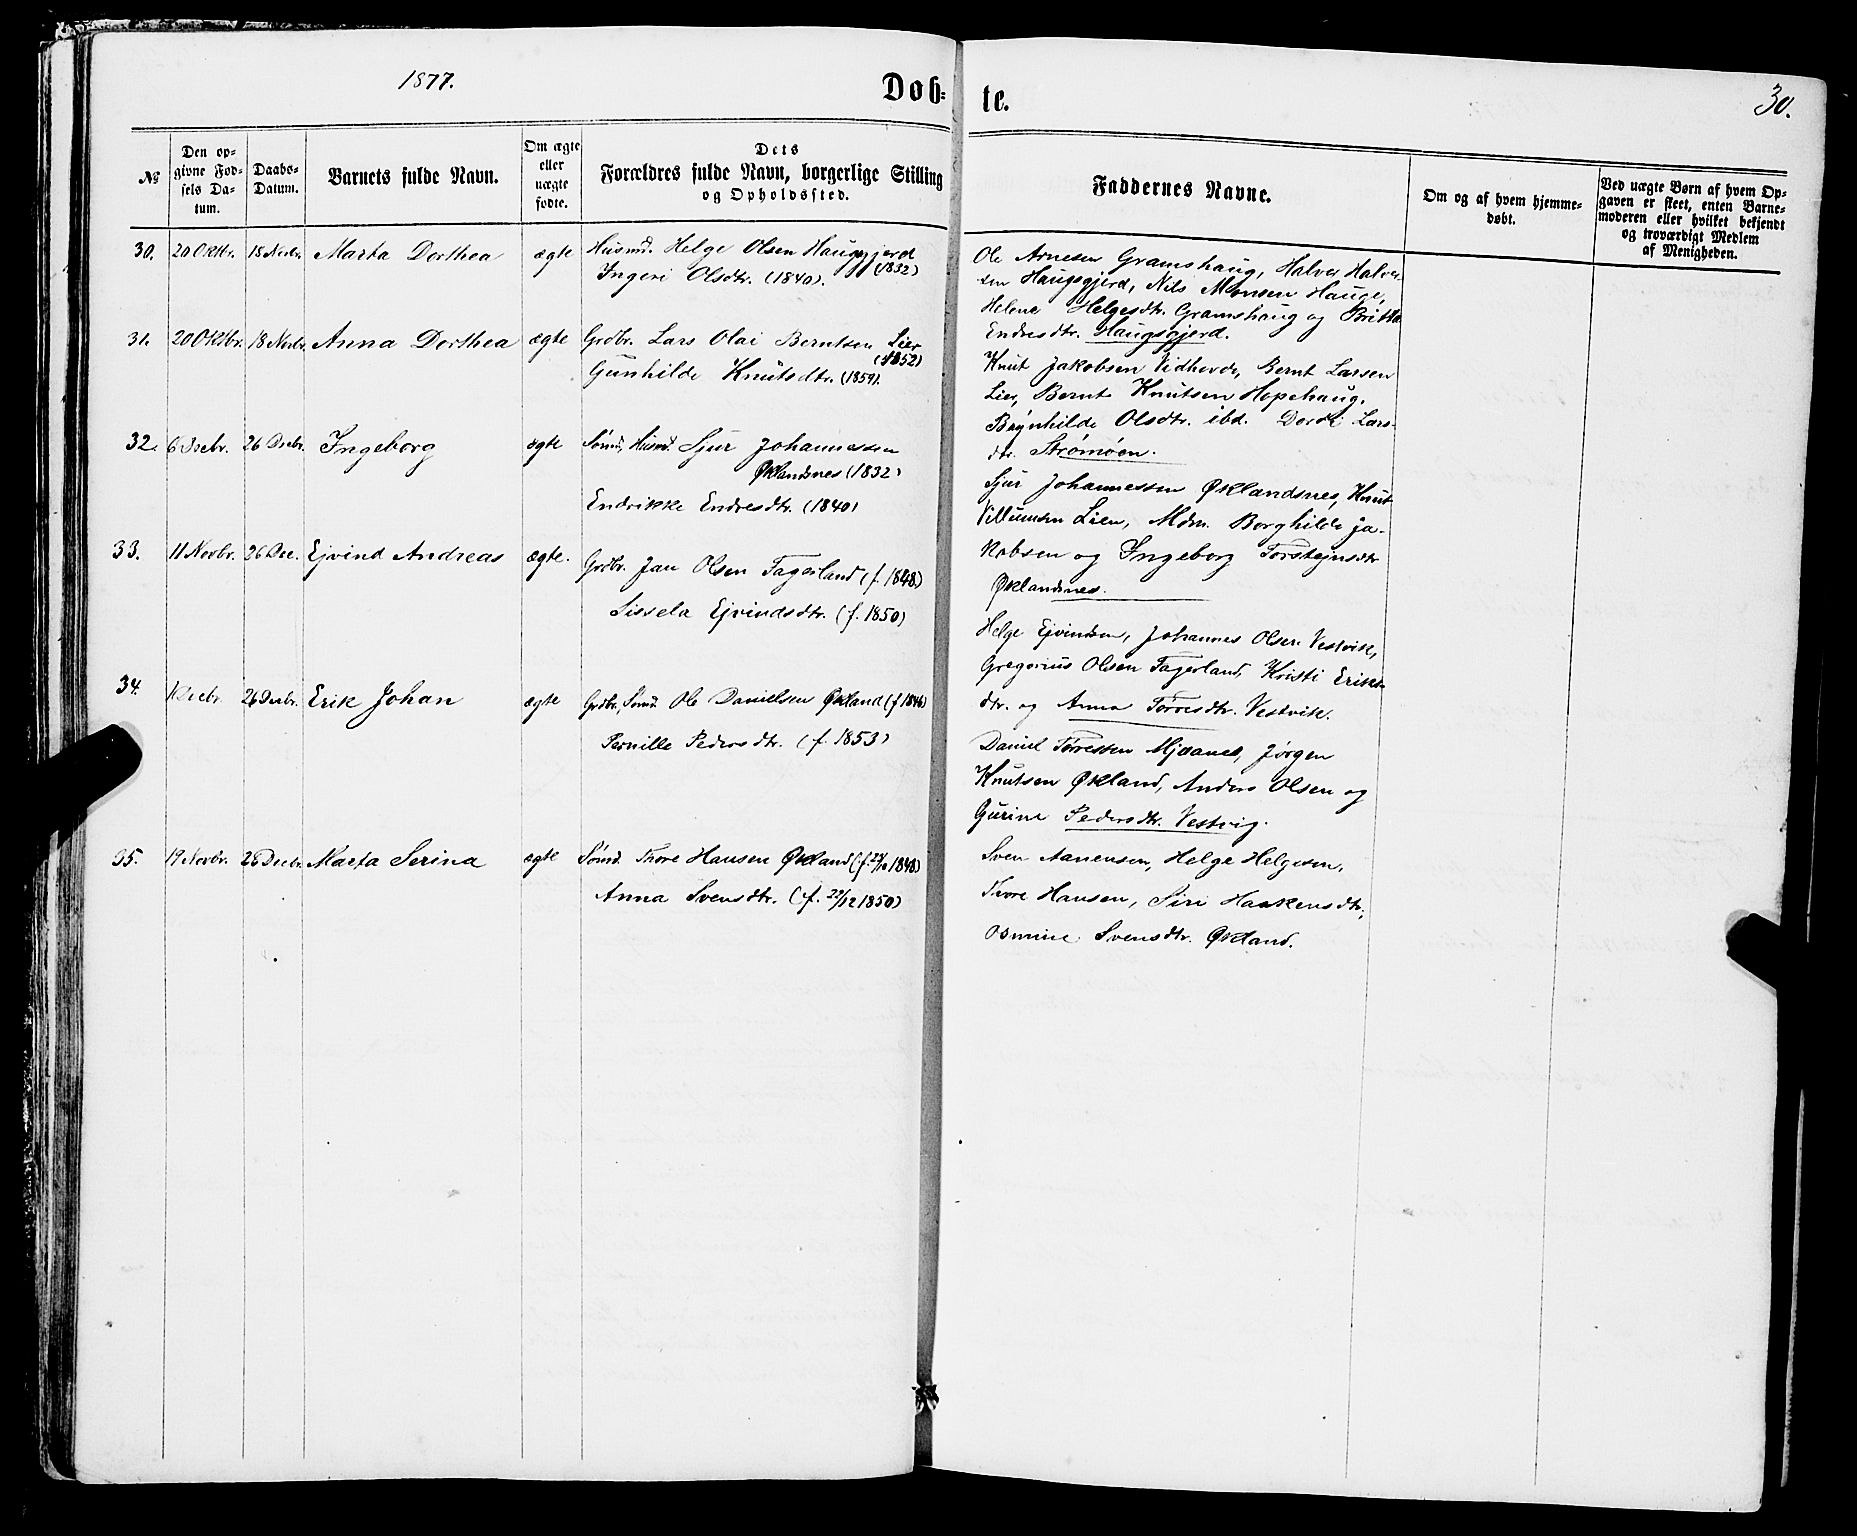 1877.
Døb-
te.
30.
№
Den op-
givne Fød-
sels Da-
tum.
Daabs-
Datum.
Barnets fulde Navn.
Om ægte
eller
uægte
fødte.
Dets
Forældres fulde Navn, borgerlige Stilling
og Opholdssted.
Faddernes Navne.
Om og af hvem hjemme-
døbt.
Ved uægte Børn af hvem Op-
gaven er skeet, enten Barne-
moderen eller hvilket bekjendt
og troværdigt Medlem
af Menigheden.
30. 20 Oktbr. 18 Novbr. Marta Dorthea ægte Husmd. Helge Olsen Haugsgjerd
(1832)
Ingeri Olsdtr. (1840).
Ole Arnesen Gramshaug, Halvor Halvor-
sen Haugsgjerd, Nils Monsen Hauge,
Helena Helgesdtr. Gramshaug og Britha
Endresdtr. Haugsgjerd.
31. 20 Oktbr. 18 Novbr. Anna Dorthea ægte Grdbr. Lars Olai Berntsen Lier
(1852)
Gunhilde Knutsdtr. (1859).
Knut Jakobsen Vidhovde, Bernt Larsen
Lier, Bernt Knutsen Hopehaug,
Brynhilde Olsdtr. ibd. Dorde Lars-
dtr. Strømøen.
32. 6 Decbr. 26 Decbr. Ingeborg ægte Sømd, Husmd. Sjur Johannessen
Øklandsnes (1832)
Endrikke Endresdtr. (1840)
Sjur Johannessen Øklandsnes, Knut
Villumsen Lien, Mdm. Borghilde Ja-
kobsen og Ingeborg Torstejnsdtr
Øklandsnes.
33. 11 Novbr. 26 Dec. Ejvind Andreas ægte. Grdbr. Jan Olsen Fagerland (f. 1848)
Sissela Ejvindsdtr. (f. 1850)
Helge Ejvindsen, Johannes Olsen Vestvik,
Gregorius Olsen Fagerland, Kristi Eriks-
dtr. og Anna Tørresdtr. Vestvik.
34. 1 Decbr. 26 Decbr. Erik Johan ægte Grdbr., Sømd. Ole Danielsen Økland (f 1846)
Pernille Pedersdtr. (f. 1853)
Daniel Tørressen Mjaanes, Jørgen
Knutsen Økland, Anders Olsen og
Gurine Pedersdtr. Vestvig.
35. 19 Novbr. 26 Decbr. Marta Serina ægte Sømd. Thore Hansen Økland (f. 1848)
Anna Svensdtr. (f. 22/12 1850)
Sven Aanensen, Helge Helgesen,
Thore Hansen, Siri Haakensdtr,
Osmine Svensdtr. Økland.